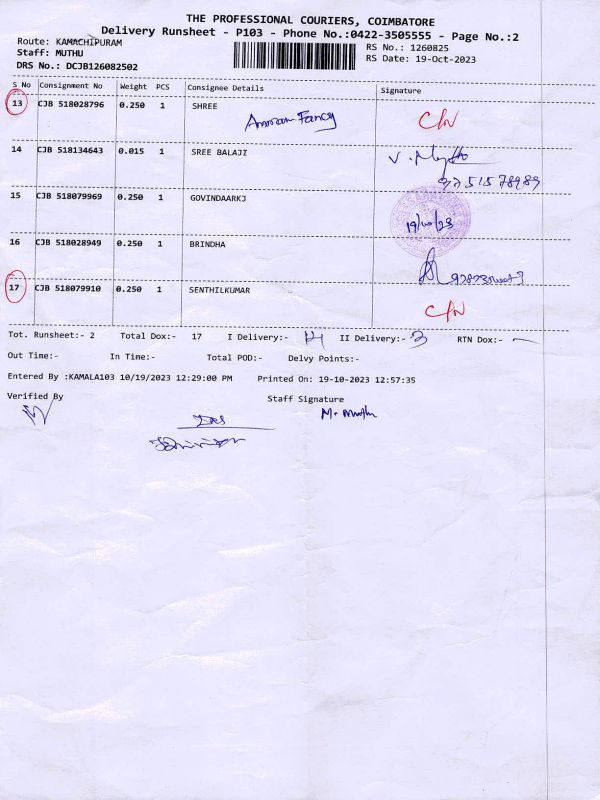 THE PROFESSIONAL COURIERS, COIMBATORE
Delivery Runsheet - P103 - Phone No.:0422-3505555 - Page No.:2
Route: KAMACHIPURAM
RS No.: 1260825
Staff: MUTHU
RS Date: 19-Oct-2023
DRS No.: DCJB126082502
S No Consignment No Weight PCS Consignee Details Signature
13 CJB 518028796 0.250 1 SHREE
Fancy C/N
14 CJB 518134643 0.015 1 SREE BALAJI V.
9751578989
15 CJB 518079969 0.250 1 GOVINDAARKJ
19/10/23
16 CJB 518028949 0.250 1 BRINDHA
17 CJB 518079910 0.250 1 SENTHILKUMAR
C/N
Tot. Runsheet:- 2 Total Dox:- 17 I Delivery:- 14 II Delivery:- 3 RTN Dox:- —
Out Time:- In Time:- Total POD:- Delvy Points:-
Entered By :KAMALA103 10/19/2023 12:29:00 PM Printed On: 19-10-2023 12:57:35
Verified By Staff Signature
M. Muthu